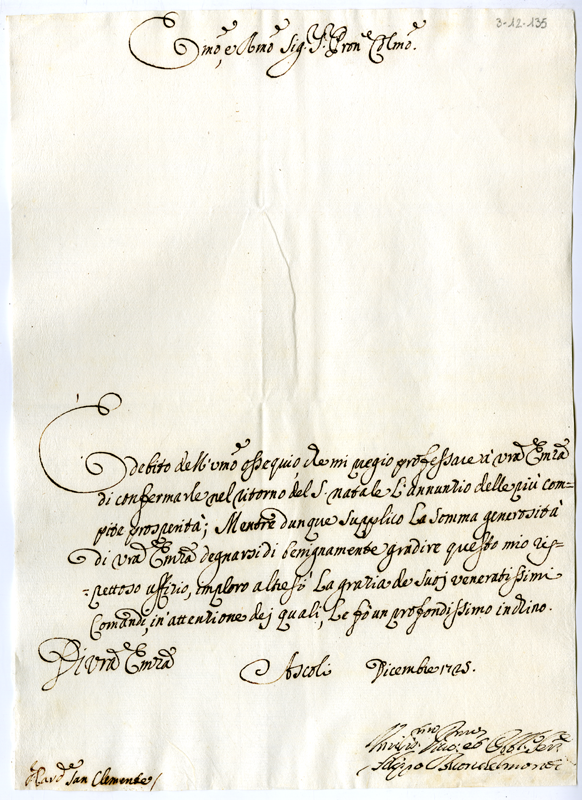 3-12-135
Emo, e Rmo Sig. P. Pron Colmo.
È debito dell'umo ossequio che mi pregio professare à Vra Emza
di confermarle nel ritorno del S. natale L'annuntio delle più com-
pite prosperità; Mentre dunque supplico La somma generosità
di Vra Emza degnarsi di benignamente gradire questo mio ris-
pettoso uffizio, imploro altresi La grazia de suoj veneratissimi
Comandi, in attentione dej quali, Le fò un profondissimo inchino.
Di Vra Emza Ascoli Dicembre 1725.
Card San Clemente